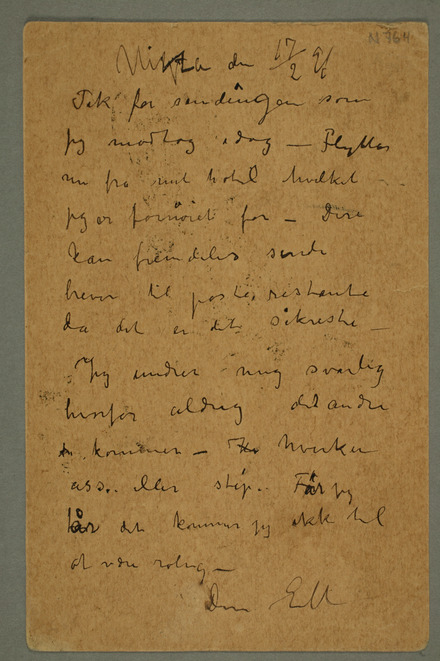 N 964
Nizza den 17/2 91
Tak for sendingen som
jeg modtog idag — Flytter
nu fra mit hotel hvilket
jeg er fornöiet for — Dere
kan fremdeles sende
brever til poste restante
da det er det sikreste —
Jeg undrer mig sværlig
hvorfor aldrig det andre
kommer — hverken
ass. eller stip. Før jeg
får det kommer jeg ikke til
at være rolig —
Din Edv